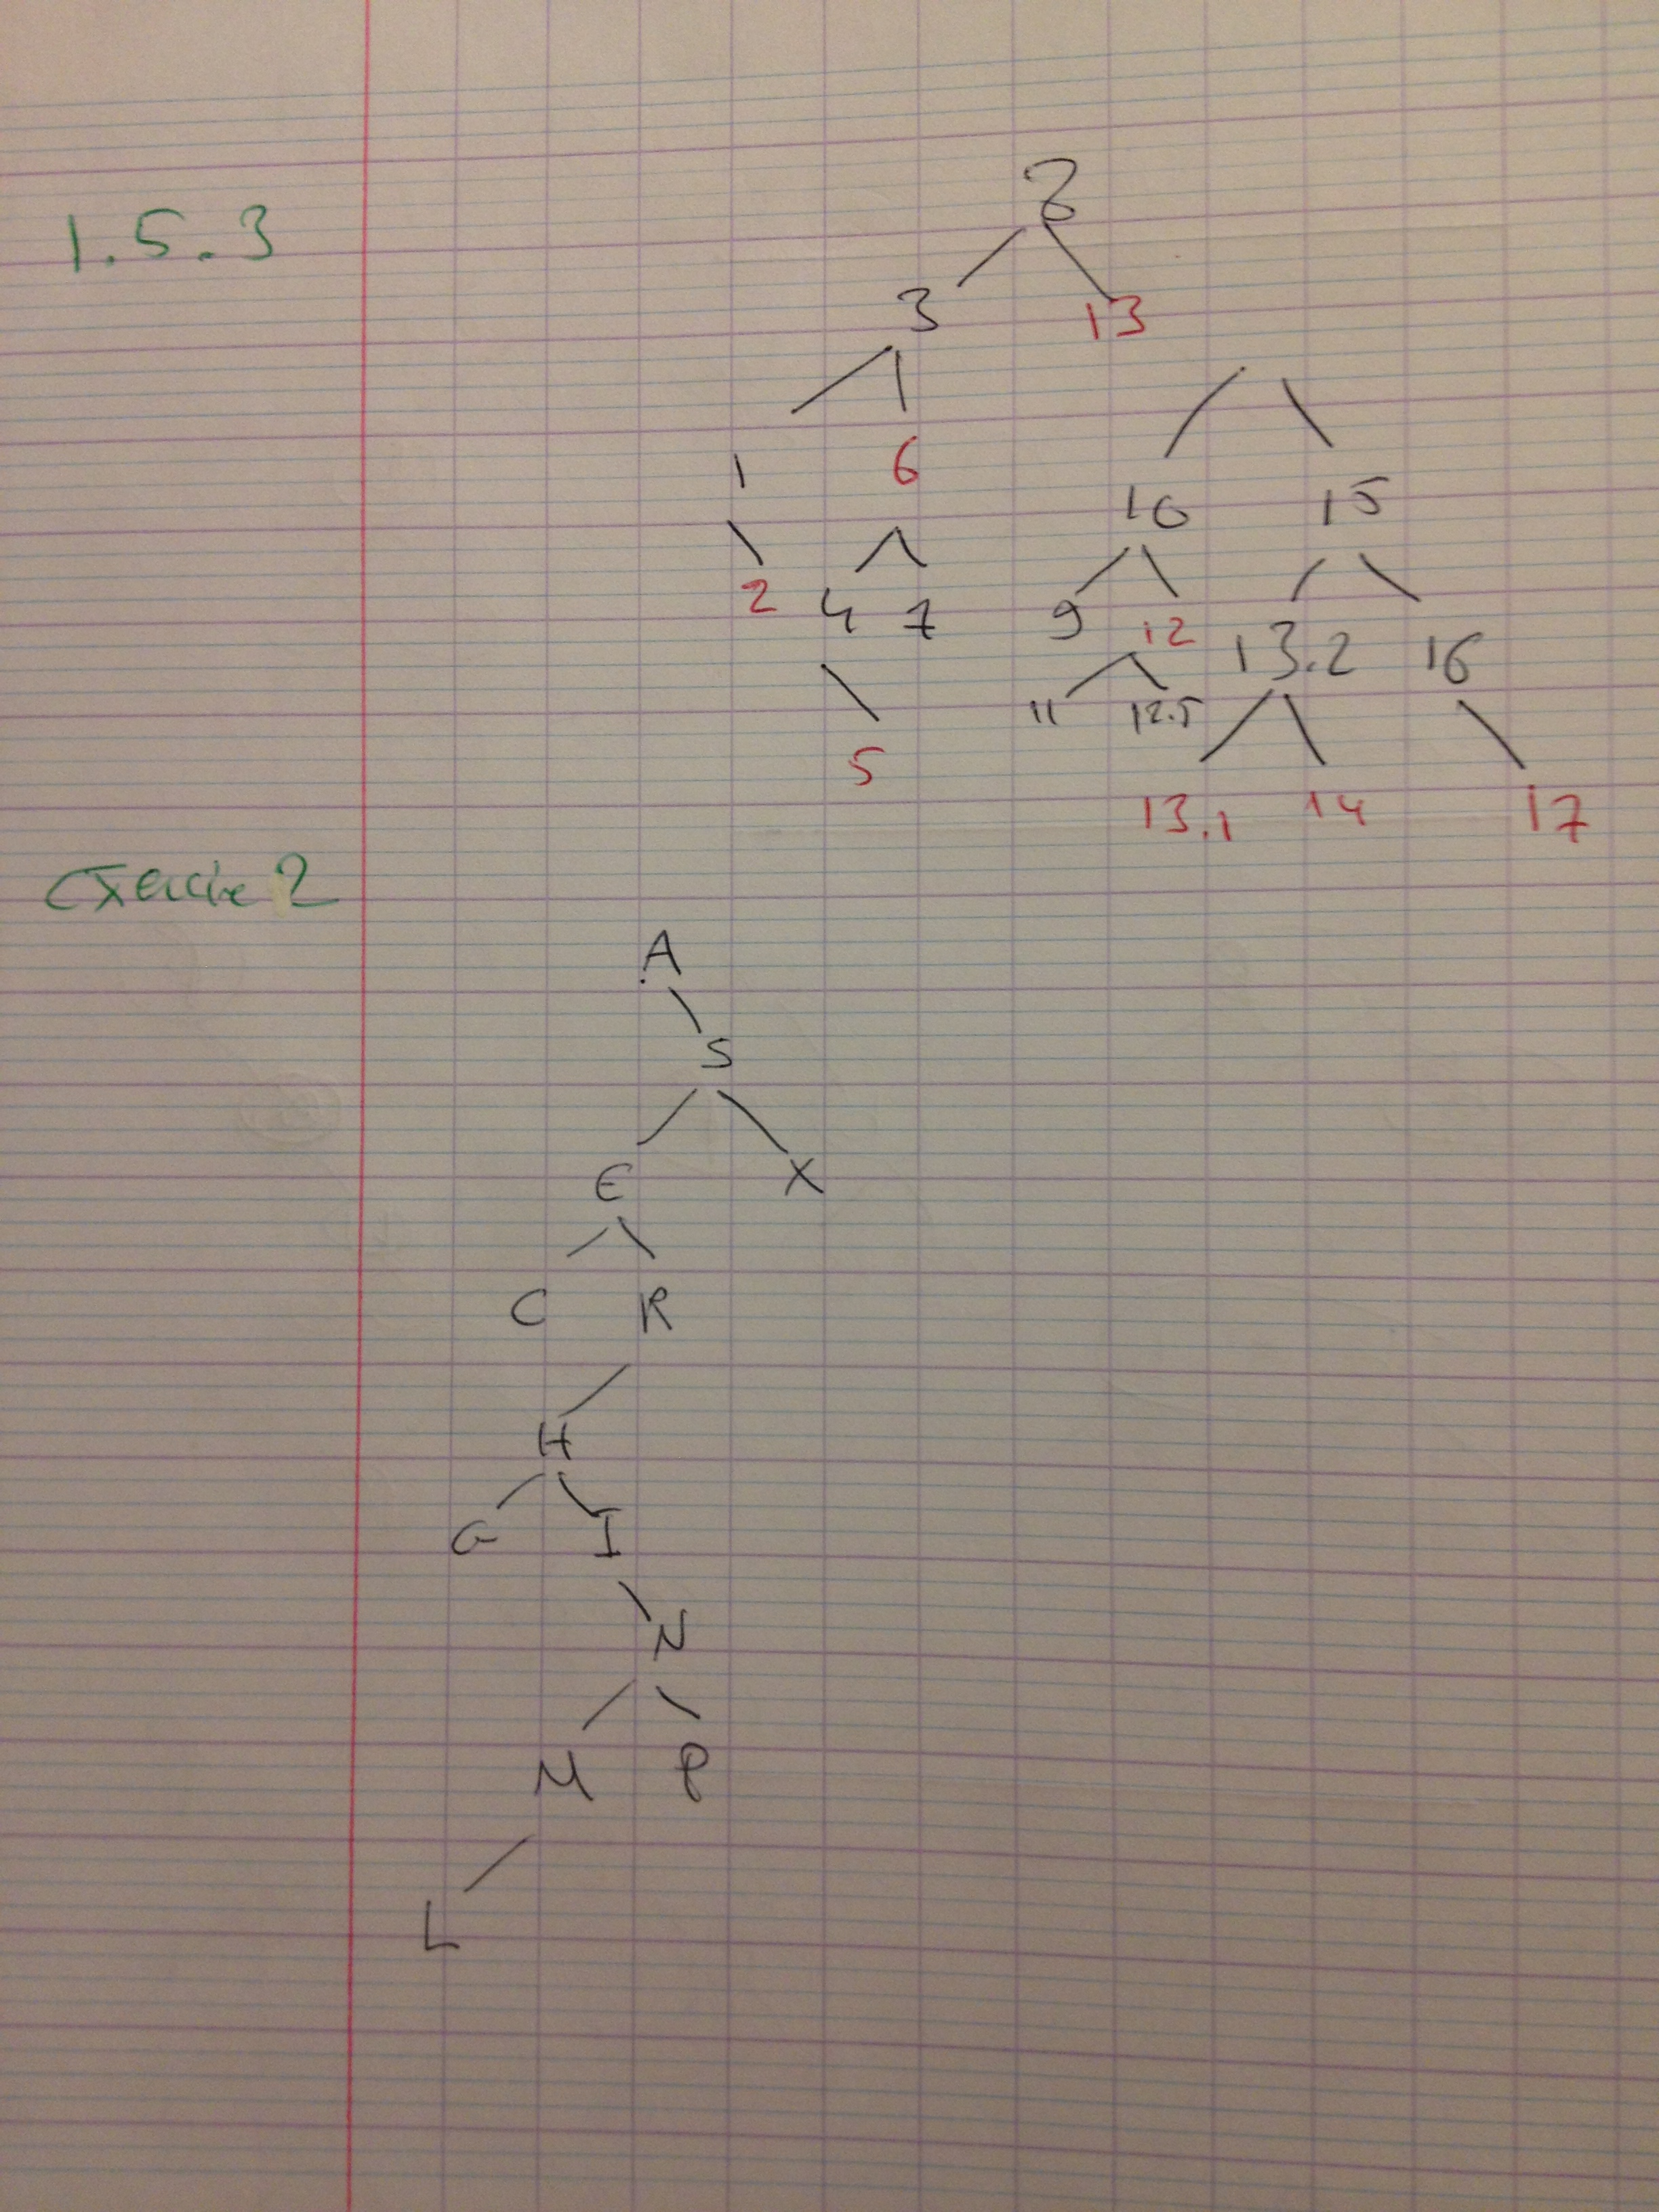 1.5.3
8
3 13
1 6 10 15
2 4 7 9 12 13.2 16
11 12.5
5 13.1 14 17
Exercice 2
A
S
E X
C R
H
G I
N
M P
L